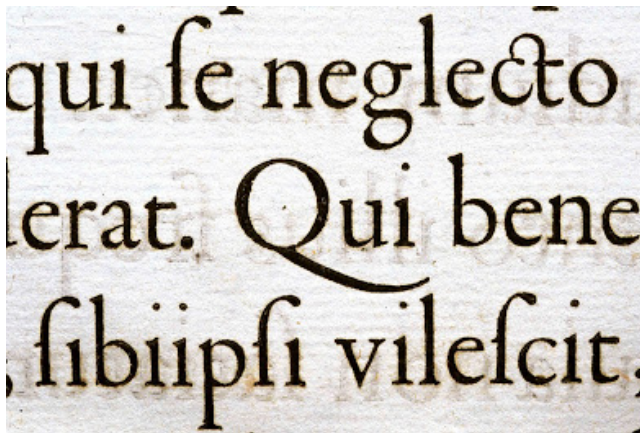 qui ſe neglecto
erat. Qui bene
, ſibiipſi vileſcit.